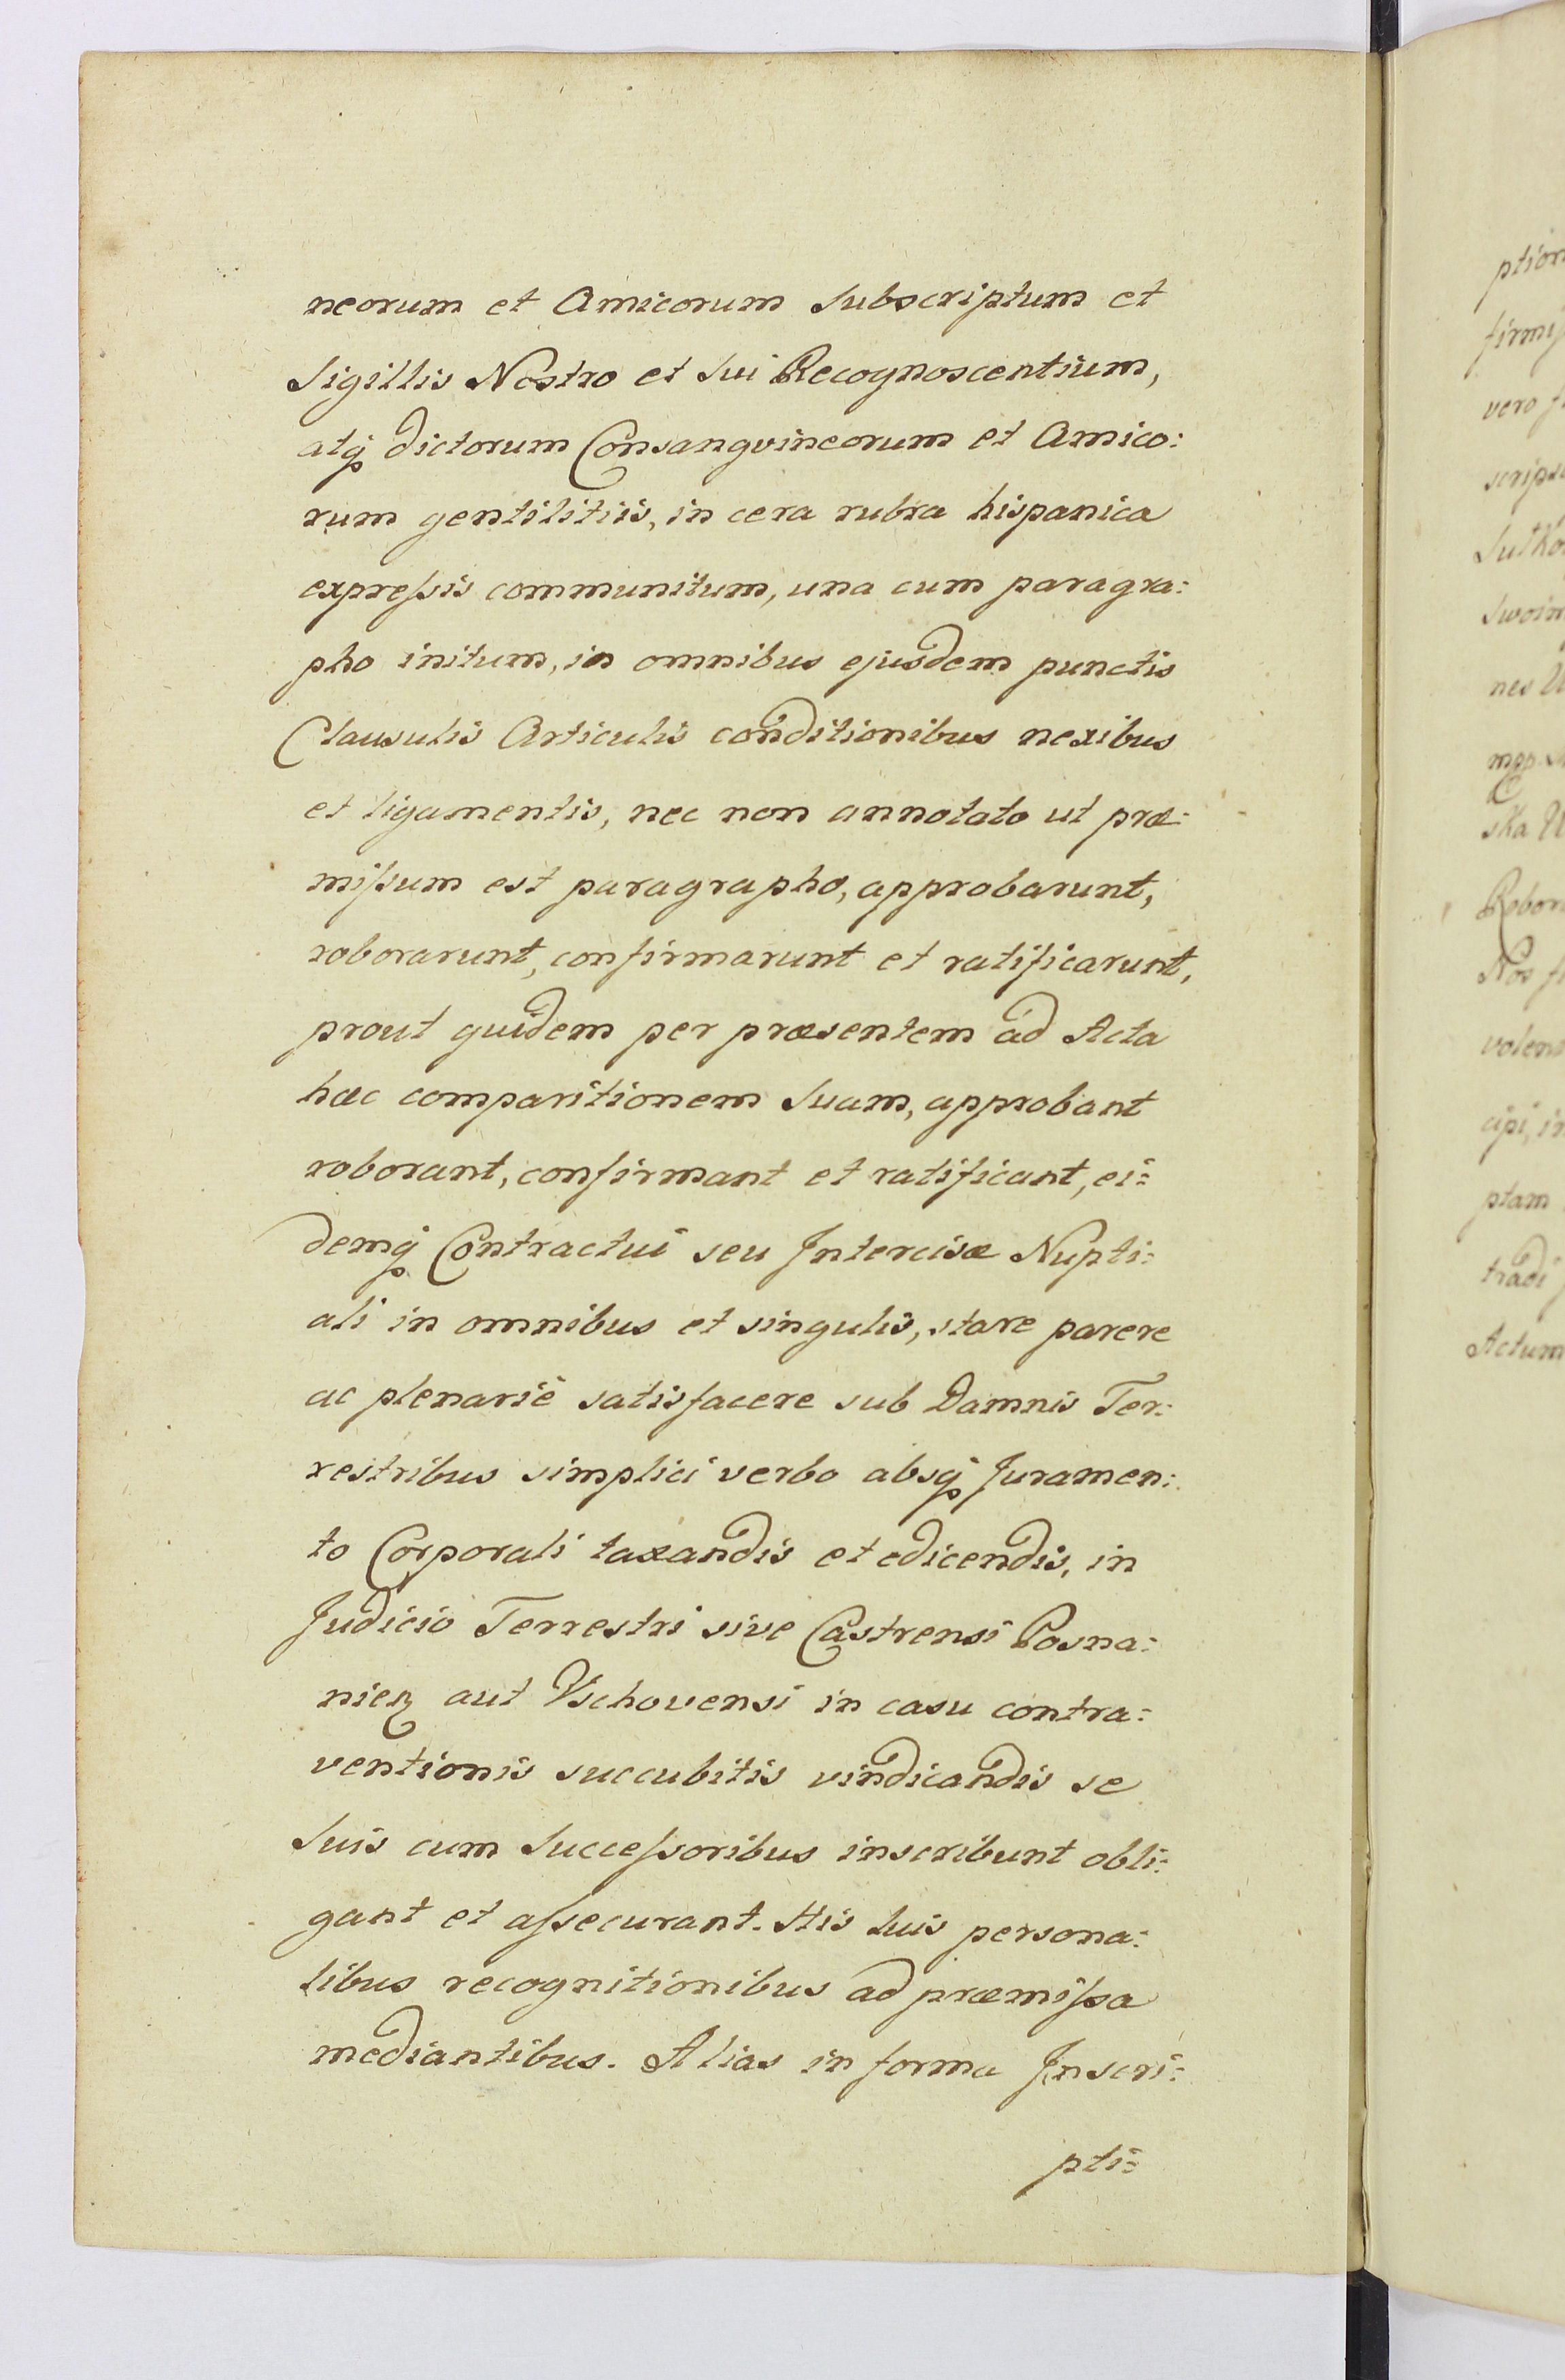 neorum et Amicorum Subscriptum et
Sigillis Nostro et Sui Recognoscentium,
atq̃ dictorum Consangvineorum et Amico:
rum gentilitiis, in cera rubra hispanica
expreſsis communitum, una cum paragra:
pho initum, in omnibus ejusdem punctis
Clausulis Articulis conditionibus nexibus
et ligamentis, nec non annotato ut præ:
miſsum est paragrapho, approbarunt,
roborarunt, confirmarunt et ratificarunt,
prout quidem per præsentem ad Acta
hæc comparitionem Suam, approbant
roborant, confirmant et ratificant, ei:
demq̃ Contractui seu Intercisæ Nupti:
ali in omnibus et singulis, stare parere
ac plenariè satisfacere sub Damnis Ter:
restribus simplici verbo absq̃ Juramen:
to Corporali taxandis et edicendis, in
Judicio Terrestri sive Castrensi Posna:
nieɳ aut Vschovensi in casu contra:
ventionis succubitis vindicandis se
Suis cum Succeſsoribus inscribunt obli:
gant et aſsecurant. His Suis persona:
libus recognitionibus ad præmiſsa
mediantibus. Alias in forma Inscri:
pti:
ption
vero
Actum
volens
ptam
tradi